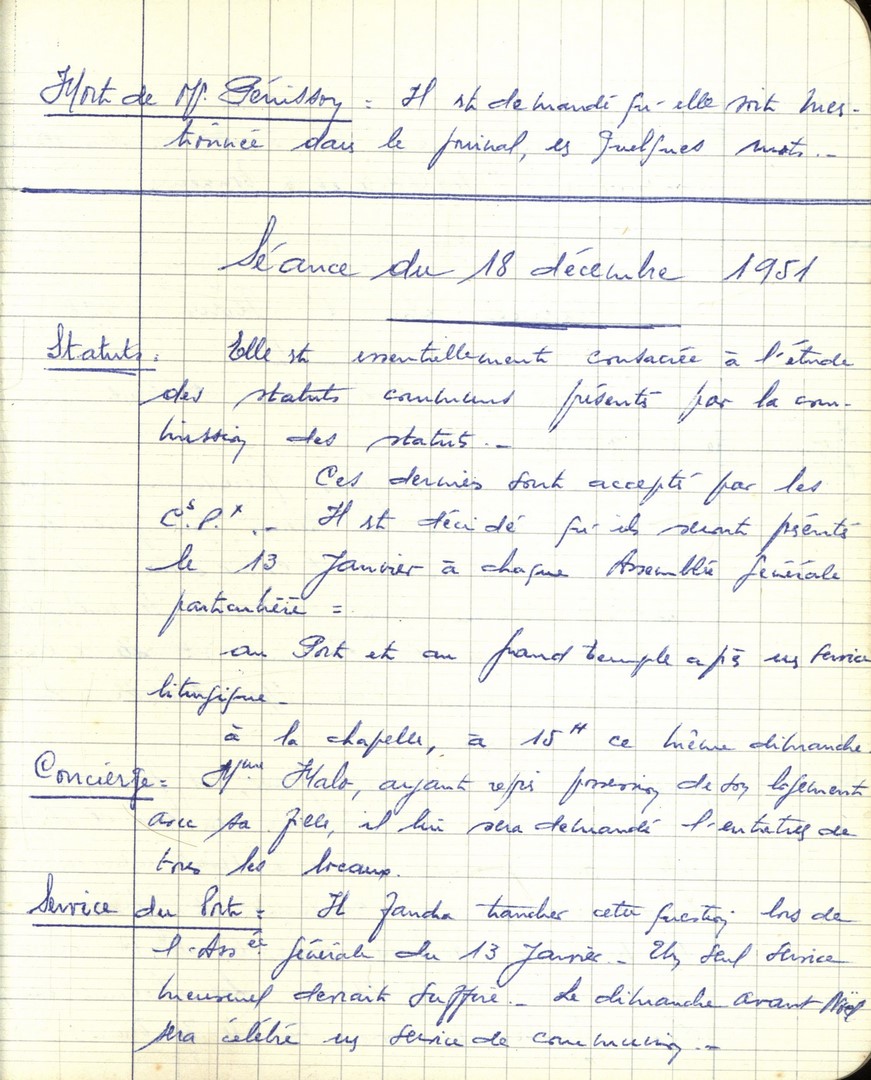 Mort de Mr. Génisson = Il est demandé qu'elle soit men-
tionnée dans le journal, en quelques mots.-
Séance du 18 décembre 1951
Statuts = Elle est essentiellement consacrée à l'étude
des statuts communs présentés par la com-
mission des statuts.-
Ces derniers sont acceptés par les
Cs. Px .- Il est décidé qu'ils seront présentés
le 13 Janvier à chaque Assemblée Générale
particulière =
au Port et au grand temple après un service
liturgique.-
à la chapelle, à 15H ce même dimanche.
Concierge = Mme Halo, ayant repris possession de son logement
avec sa fille, il lui sera demandé l'entretien de
tous les locaux.
Service du Port = Il faudra trancher cette question lors de
l'Assée Générale du 13 Janvier.- Un seul service
mensuel devrait suffire.- Le dimanche avant Noël
sera célébré un service de communion.-